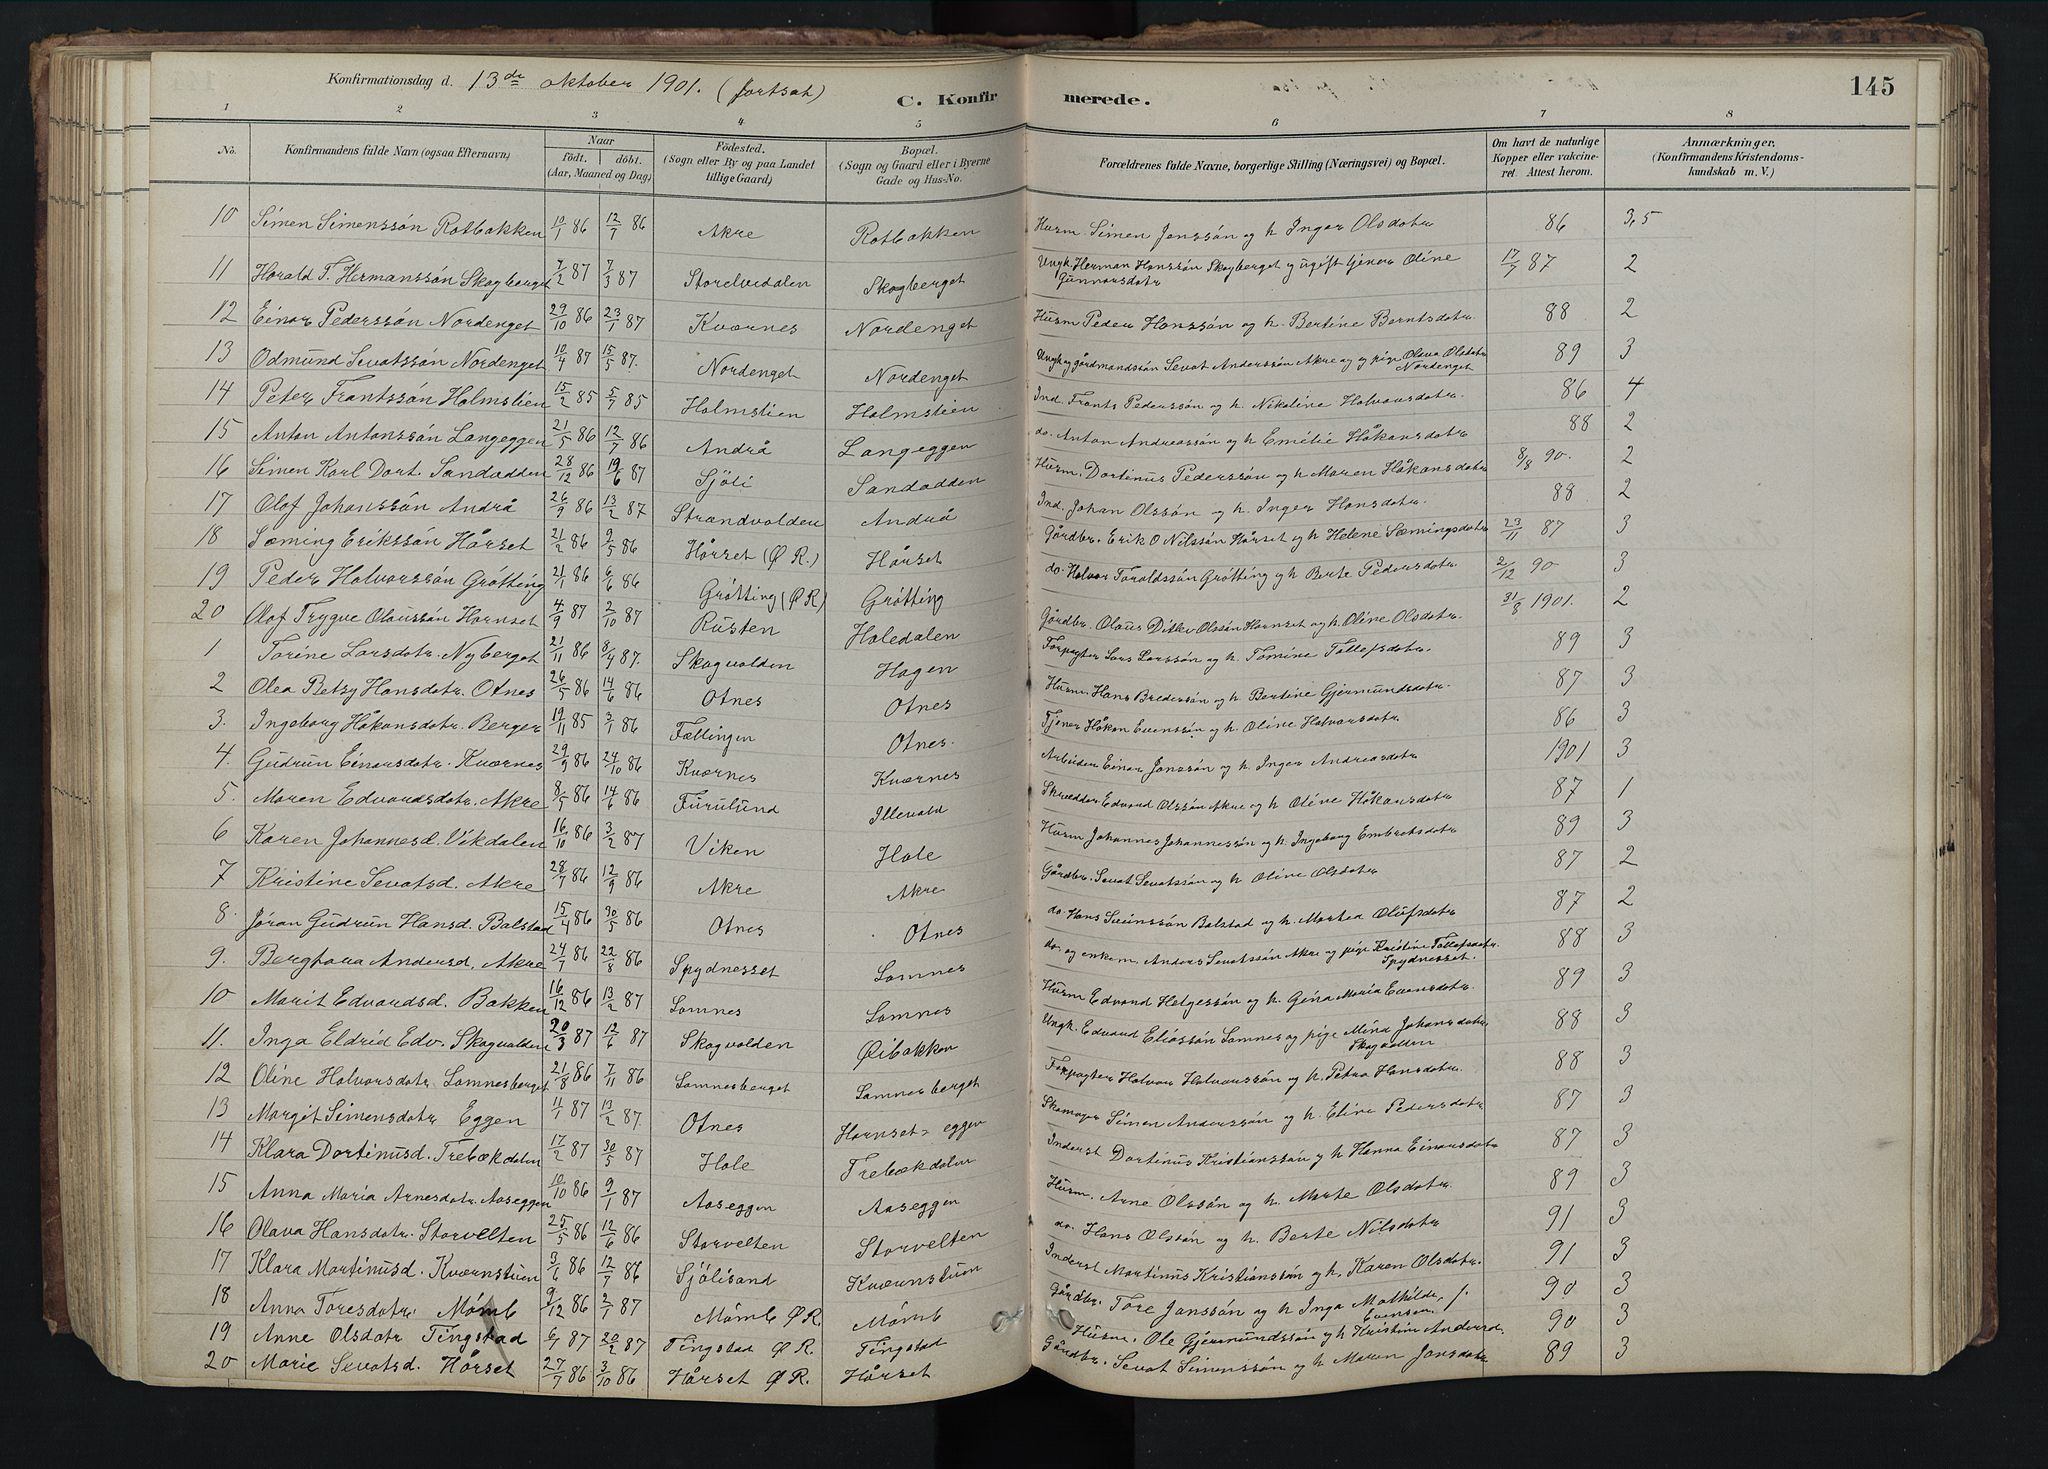 Konfirmationsdag d. 13de oktober 1901. (fortsat)
C. Konfirmerede.
145
1 2 3 4 5 6 7 8
No. | Konfirmandens fulde Navn (ogsaa Efternavn) | Naar födt. döbt. (Aar, Maaned og Dag) | Födested. (Sogn eller By og paa Landet tillige Gaard) | Bopæl. (Sogn og Gaard eller i Byerne Gade og Hus-No. | Forældrenes fulde Navne, borgerlige Stilling (Næringsvei) og Bopæl. | Om havt de naturlige Kopper eller vakcineret. Attest herom. | Anmærkninger, (Konfirmandens Kristendomskundskab m. V.)
10 Simen Simenssön Rotbakken 10/1 86 12/7 86 Akre Rotbakken Husm. Simen Jonssön og h. Inger Olsdatr 86 3,5
11 Harald T. Hermanssön Skogberget 7/2 87 7/3 87 Storelvedalen Skogberget Ungk. Herman Hanssön Skogberget og ugift tjener Oline Gunnarsdatr 17/7 87 2
12 Einar Pederssön Nordenget 29/10 86 23/1 87 Kværnes Nordenget Husm Peder Hanssön og h. Bertine Berntsdatr. 88 2
13 Odmund Sevatssön Nordenget 10/4 87 15/5 87. Nordenget Nordenget Ungk og gårdmandssön Sevat Anderssön Akre og pige Olava Olsdatr Nordenget 89 3
14 Peter Frantssön Holmstien 15/2 85 5/7 85 Holmstien Holmstien Ind. Frants Pederssön og h. Nikoline Halvorsdatr. 86 4
15 Anton Antonssön Langeggen 21/5 86 12/7 86 Andrå Langeggen do. Anton Andreassön og h Emelie Håkonsdatr 88 2
16 Simen Karl Dort. Sandodden 28/12 86 19/6 87 Sjöli Sandodden Husm. Dortinus Pederssön og h Maren Håkonsdatr 8/8 90. 2
17 Olaf Johanssön Andrå 26/9 86 13/2 87 Strandvolden Andrå Ind. Johan Olssön og h. Inger Hansdatr. 88 2
18 Sæming Erikssön Hårset 21/2 86 9/5 86 Hårset (Ø R.) Hårset Gårdbr. Erik O Nilssön Hårset og h Helene Sæmingsdatr 23/11 87 3
19 Peder Halvorssön Grötting 21/1 86 6/6 86 Grötting (Ø R) Grötting do. Halvor Toraldssön Grötting og h Berte Pedersdatr 2/12 90 3
20 Olaf Trygve Olaussön Hornset 4/9 87 2/10 87 Rusten Haledalen Gårdbr. Olaus Ditlev Olssön Hornset og h. Oline Olsdatr. 31/8 1901. 2
1 Torine Larsdatr. Nyberget 21/11 86 8/4 87. Skogvolden Hagen Forpagter Lars Larssön og h. Tomine Tollefsdatr. 89 3
2 Olea Betzy Hansdatr. Otnes 26/5 86 14/6 86 Otnes Otnes Husm. Hans Brederssön og h Bertine Gjermundsdatr. 87 3
3. Ingeborg Håkonsdatr. Berger 19/11 85 3/1 86 Fællingen Otnes. Tjener Håkon Evenssön og h. Oline Halvorsdatr. 86 3
4. Gudrun Einarsdatr. Kværnes 29/9 86 24/10 86 Kværnes Kværnes Arbeider Einar Jonssön og h. Inger Andreasdatr 1901 3
5. Maren Edvardsdatr. Akre 8/5 86 14/6 86 Furulund Illevold Skrædder Edvard Olssön Akre og h Oline Håkonsdatr 87 1
6 Karen Johannesd. Vikdalen 16/10 86 3/2 87 Viken Hole Husm Johannes Johannessön og h. Ingeborg Embretsdatr 89 3
7 Kristine Sevatsd. Akre 28/7 86 12/9 86 Akre Akre Gårdbr. Sevat Sevatssön og h Oline Olsdatr 87 2
8. Jöran Gudrun Hansd. Balstad 15/4 86 30/5 86 Otnes Otnes do. Hans Svenssön Balstad og h. Martea Olufsdatr 87 2
9. Bergtora Andersd. Akre 24/7 86 22/8 86 Spydnesset Lomnes do. og enkem. Anders Sevatssön Akre og pige Kristine Tollefsdatr. Spydnesset. 88 3
10 Marit Edvardsd. Bakken 16/12 86 13/2 87 Lomnes Lomnes Husm Edvard Helgessön og h. Gina Maria Evensdatr. 89 3
11. Inga Eldrid Edv. Skogvolden 20/3 87 12/6 87 Skogvolden Øibakken Ungk. Edvard Eliassön Lomnes og pige Mina Johansdatr. Skogvolden 88 3
12 Oline Halvorsdatr. Lomnesberget 21/8 86 7/11 86 Lomnesberget Lomnesberget Forpagter Halvor Halvorssön og h. Petra Hansdatr. 88 3
13 Margit Simensdatr Eggen 11/1 87 13/2 87. Otnes Hornset-eggen Skomager Simen Anderssön og h. Eline Pedersdatr 87 3
14 Klara Dortinusd. Trebækdalen 17/2 87 30/5 87 Hole Trebækdalen Inderst Dortinus Kristianssön og h Hanna Einarsdatr 87 3
15 Anna Maria Arnesdatr. Aaseggen 10/10 86 9/1 87 Aaseggen Aaseggen Husm. Arne Olssön og h. Marte Olsdatr. 89 3
16 Olava Hansdatr. Storvelten 25/5 86 12/6 86 Storvelten Storvelten do. Hans Olssön og h. Berte Nilsdatr 91 3
17 Klara Martinusd. Kværnstuen 3/6 86 12/7 86 Sjölisand Kværnstuen Inderst Martinus Kristianssön og h. Karen Olsdatr. 91 3
18 Anna Toresdatr. Mömb 9/12 86 2/1 87 Mömb Ø R. Mömb Gårdbr. Tore Jonssön og h Inga Mathilde, f. Evensen. 90 3
19 Anne Olsdatr Tingstad 6/1 87 20/2 87 Tingstad Ø R. Tingstad Husm. Ole Gjermundssön og h Kristine Andersd. 90 3
20 Marie Sevatsd. Hårset 27/7 86 3/10 86 Hårset Ø R. Hårset Gårdbr. Sevat Simenssön og h Maren Jonsdatr 89 3